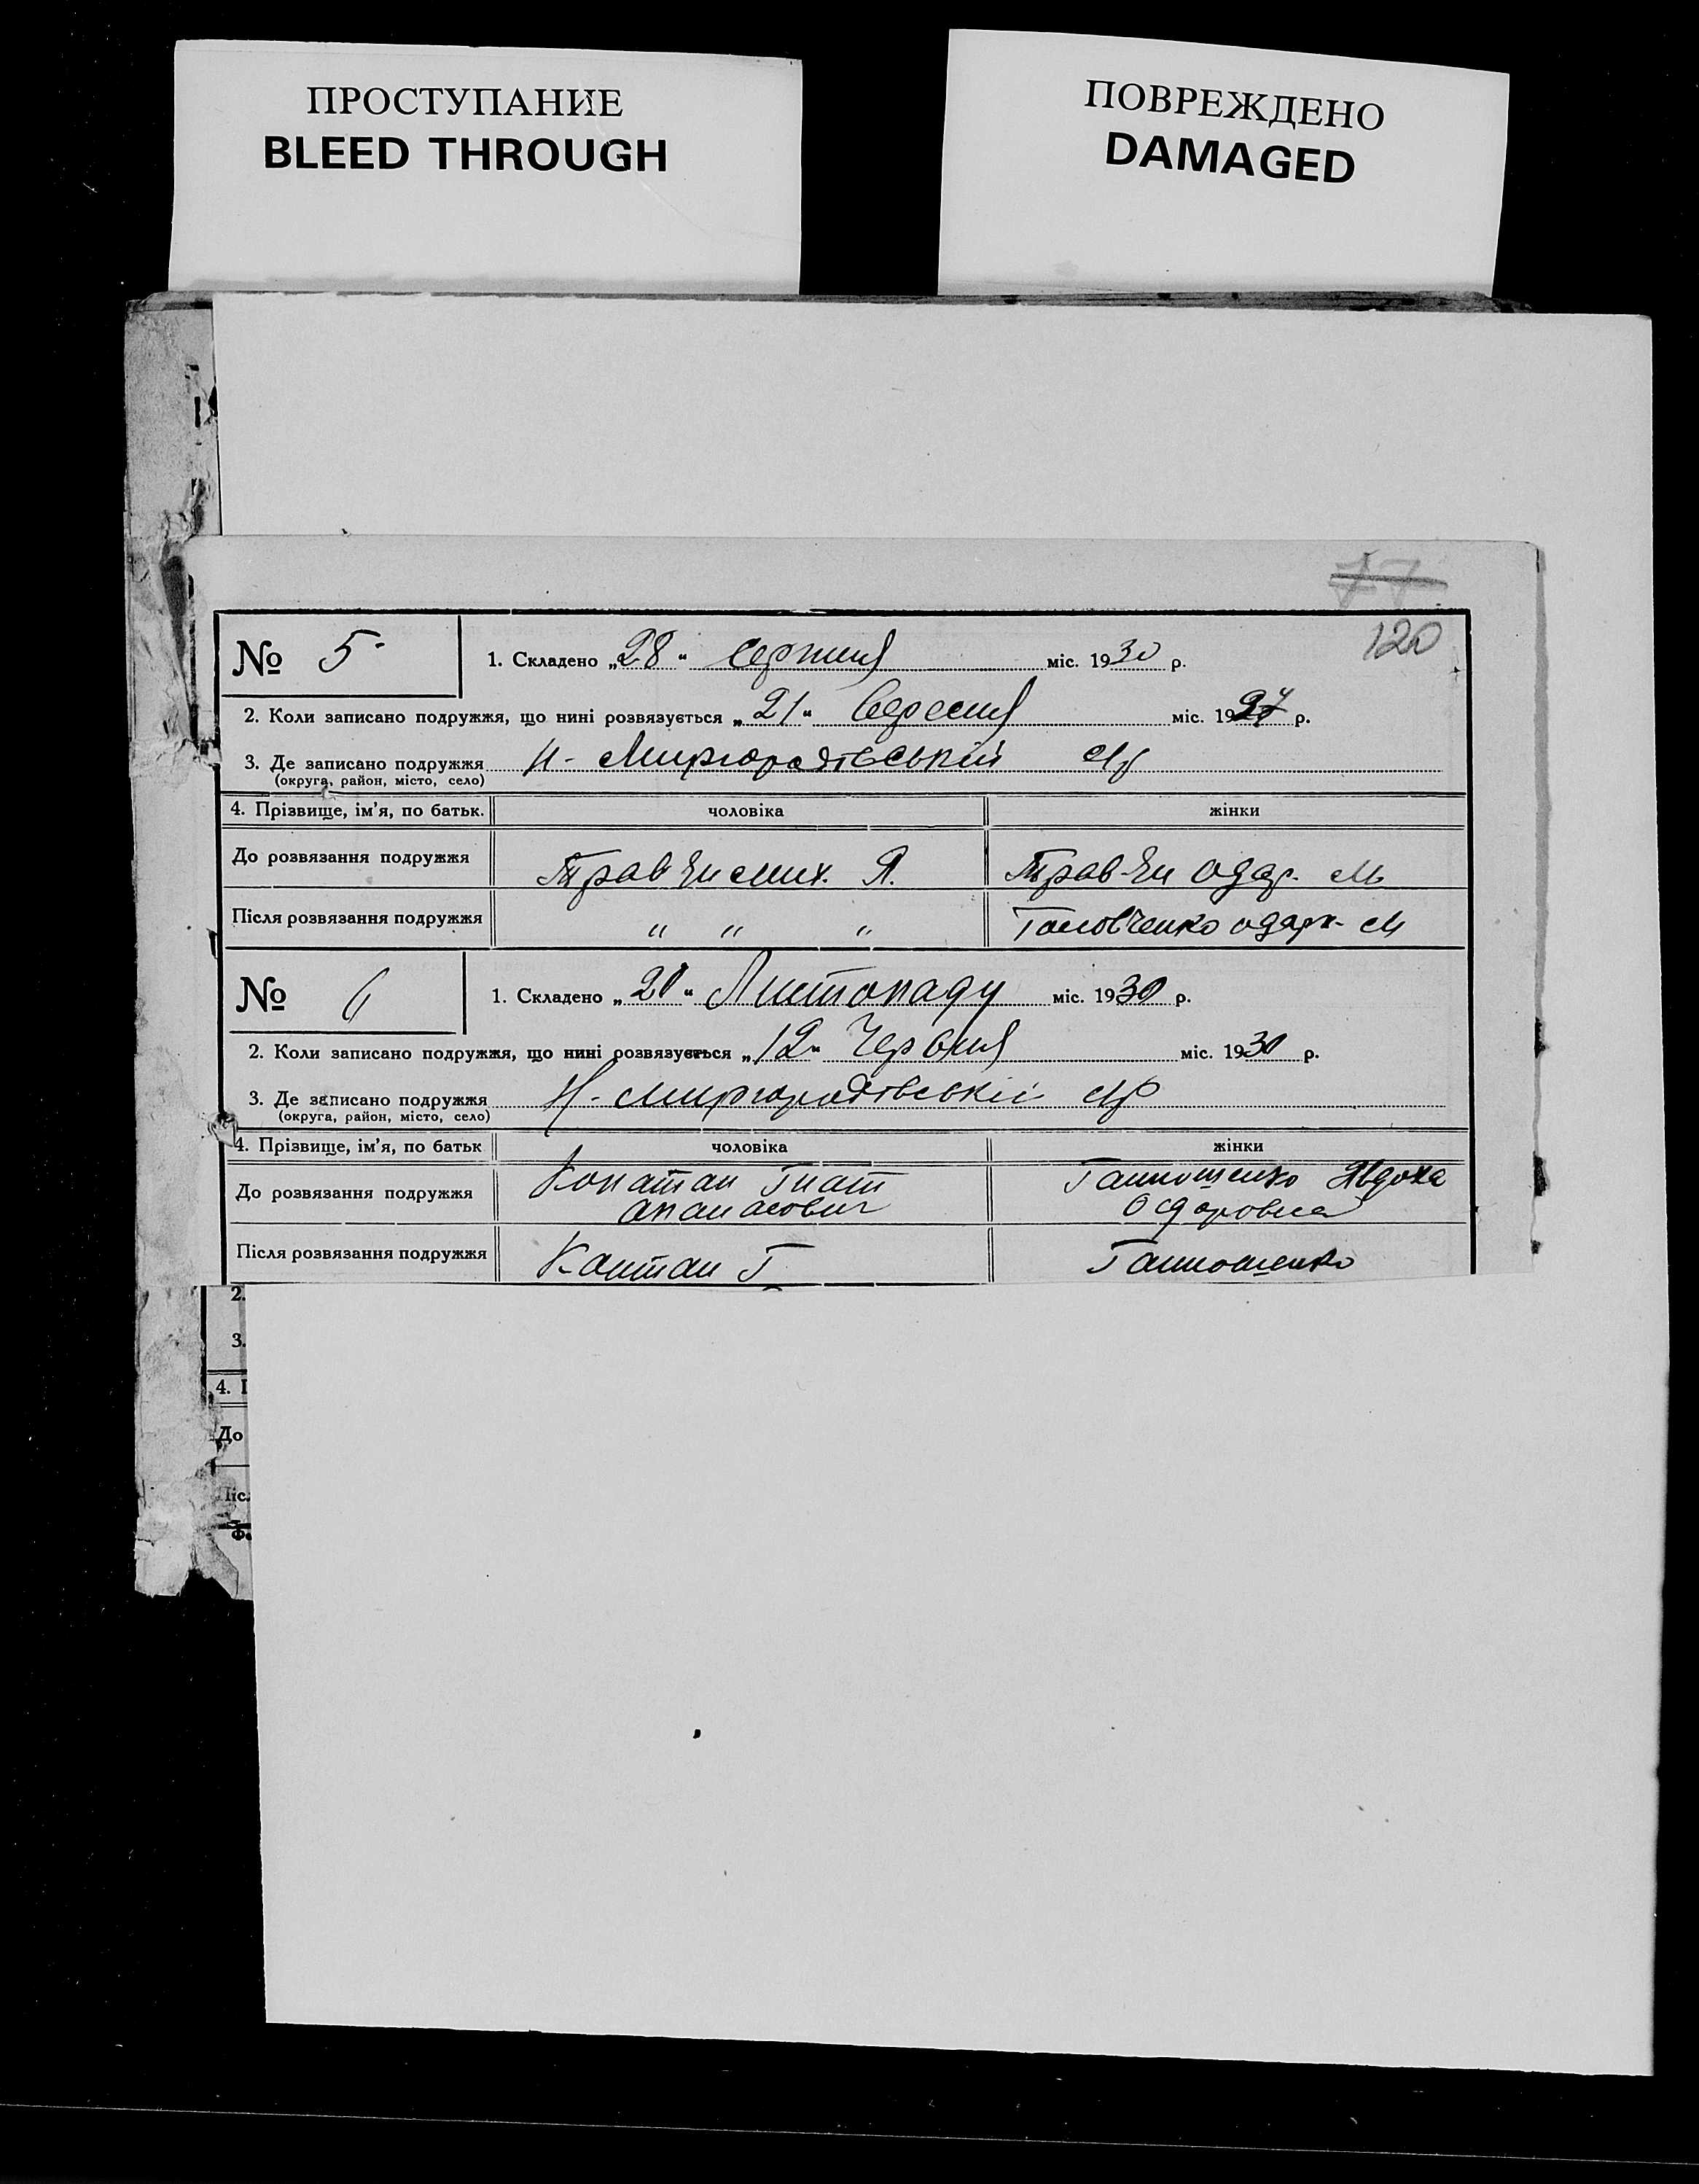 ПРОСТУПАНИЕ
BLEED THROUGH
ПОВРЕЖДЕНО
DAMAGED
77
120
№ 5
1. Складено „28“ серпня міс. 1930 р.
2. Коли записано подружжя, що нині розвязується „21“ Вересня міс. 1927 р.
3. Де записано подружжя Н-Миргородівській
(округа, район, місто, село)
4. Прізвище, ім'я, по батьк. чоловіка жінки
До розвязання подружжя Мих. Я. Одар. М
Після розвязання подружжя " " " Головченко Одар. М
№ 6
1. Складено „20“ Листопаду міс. 1930 р.
2. Коли записано подружжя, що нині розвязується „12“ Червня міс. 1930 р.
3. Де записано подружжя Н-Миргородівській
(округа, район, місто, село)
4. Прізвище, ім'я, по батьк чоловіка жінки
До розвязання подружжя Гнат Явдоха
Апанасович
Після розвязання подружжя Каптан Г
2.
3.
4. І
До
Піс